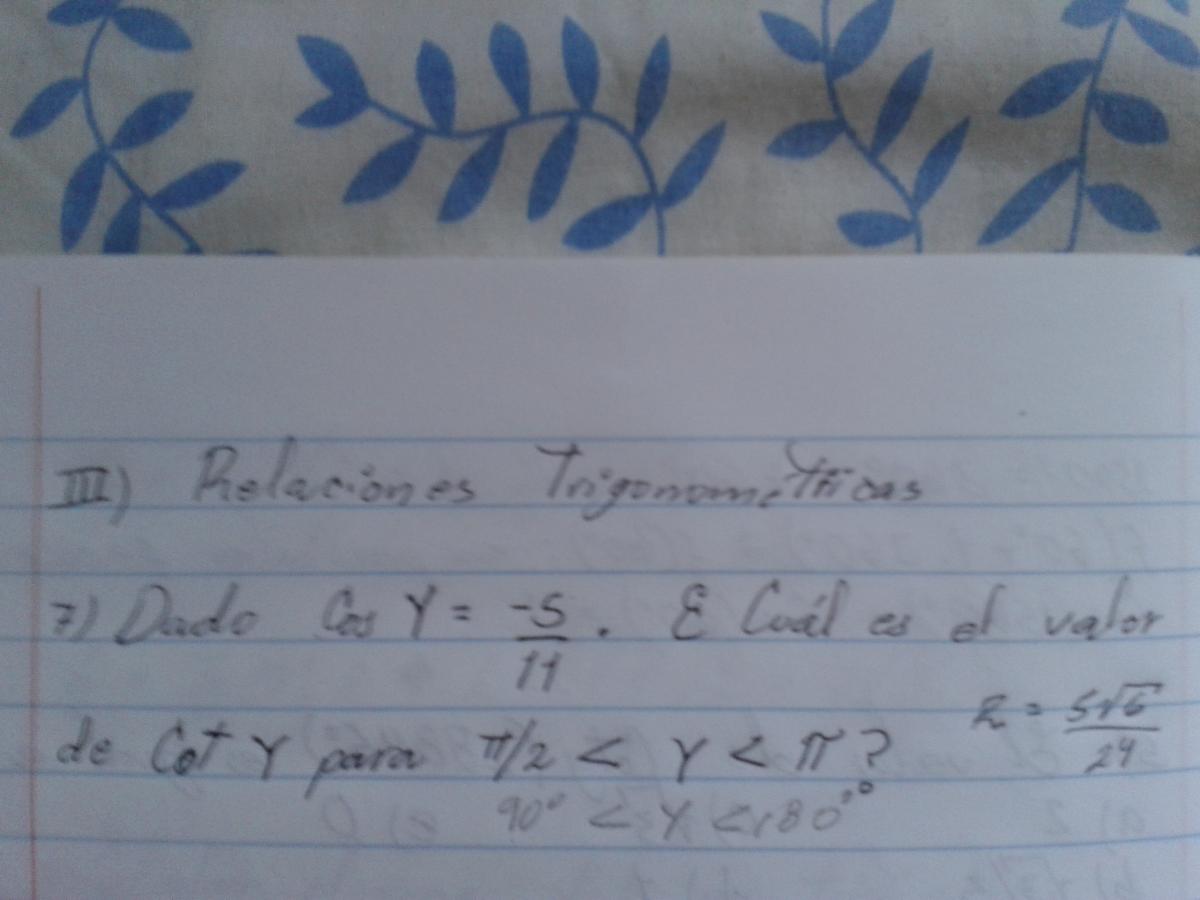 III) Relaciones Trigonométricas
7) Dado Cos Y = -5/11 . ¿ Cuál es el valor
de Cot Y para π/2 < Y < π ? R = 5√6/24
90° < Y < 180°